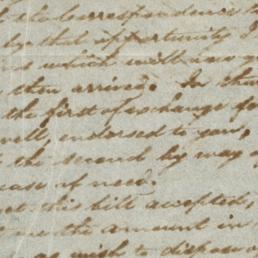 to correspondence
by that opportunity I
which will now
then arrived. In the
the first of exchange for
well, endorsed to you,
the second by way of
case of need.
this bill accepted,
me the amount in
as wish to dispose of